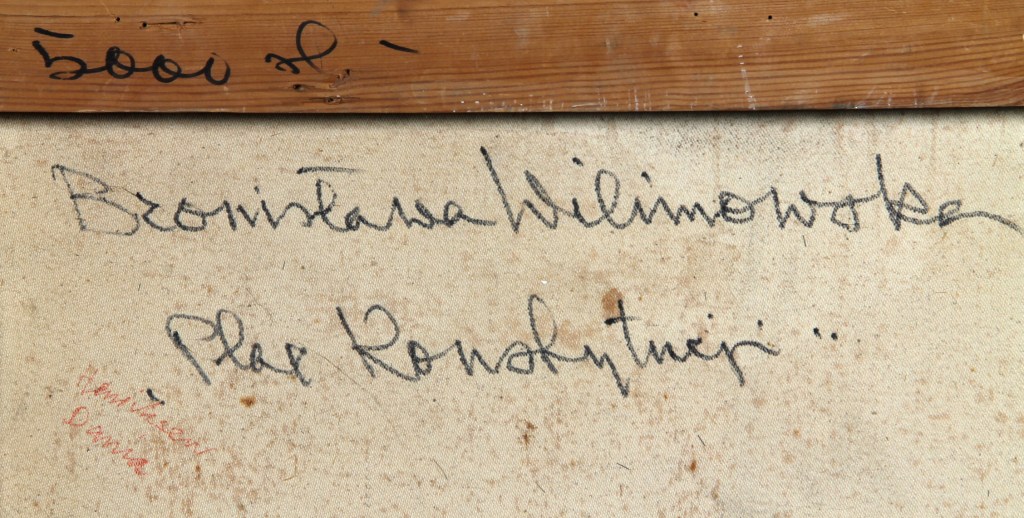 5000 zł. -
Bronisława Wilimowska
"Plac Konstytucji"
Dama